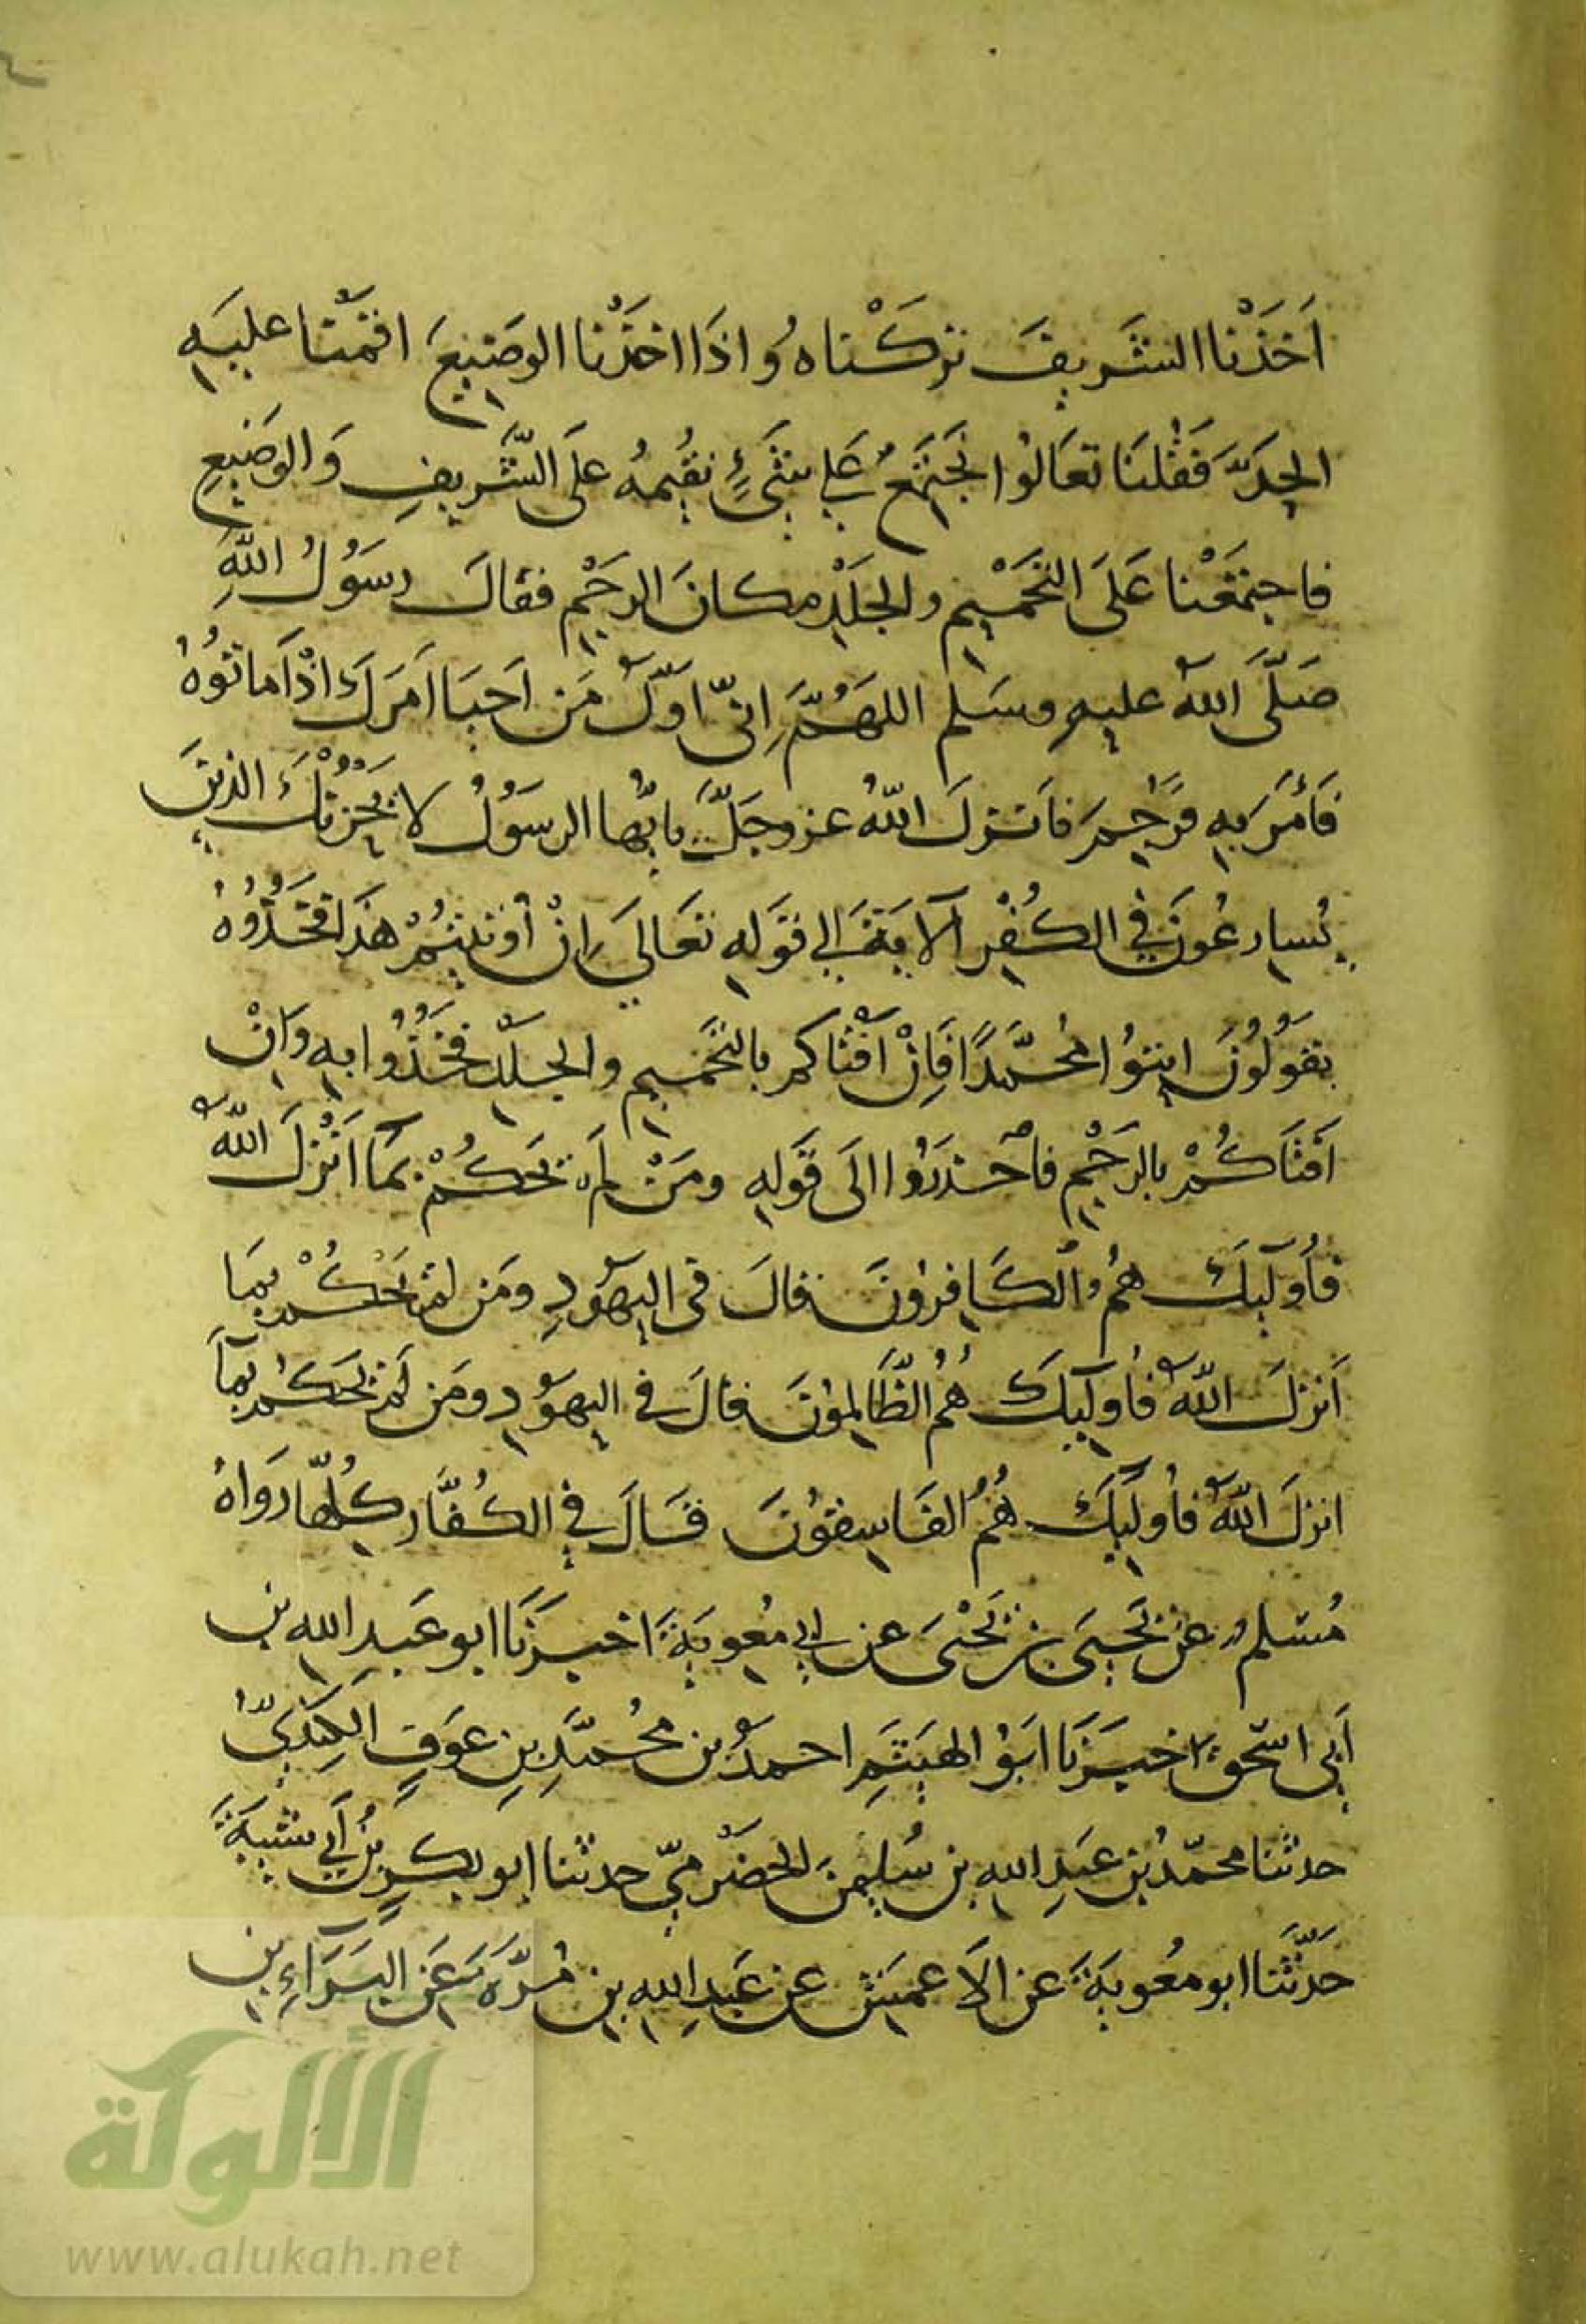 اَخَذْنا الشَّريفَ تركْناهُ واِذَا اخذْنا الوَضيعَ اقمْنا عليَهِ
الحِدَّ فَقُلنَا تعَالوْا نَجْتَمَعُ على شَىْءٍ نُقيمهُ عَلَى الشَّريفِ وَالوضَيعِ
فاجتمَعْنا عَلَى التحَّمْيم والجَلْدِ مكانَ الرجْم فقالَ رسَوُلُ اللهِ
صَلَّى اللهُ عليهِ وسَلم اللهُمَّ اِنّى اَوّلُ مَن اَحيَا اَمرَكَ اذْ اَماتوُهُ
فَأمَرَ بهِ فرَجِمَ فاَنزلَ اللهُ عزوجَلَّ يايُّها الرسَوُلُ لا يَحْزُنْكَ الذينَ
يُسارعُونَ فِي الكُفْر الآيَةَ الى قوَله تعَالىَ اِنْ أوُتيتُمْ هذَا فخَذُوُهُ
يقوَلُوُنَ ايتوُا مُحمّدًا فَاِنْ اَفْتاكم بالتحَّميم والجلَد فخَذُوُا بهِ وَانْ
اَفْتَاكُمْ بالرجْمِ فاحْذرَوُا الَى قَوَلهِ ومَنْ لَم يَحكُمْ بمَا اَنْزلَ اللهُ
فأُوليكَ همُ الكَافِروُنَ قالَ فى اليهَوُدِ ومَن لم يَحْكُمْ بمَا
اَنزلَ اللهُ فأُوليكَ هُمُ الظَّالموُنَ قالَ في اليهوُدِ ومَن لم يَحكُمْ بمَا
انزلَ اللهُ فأُوليكَ هُمُ الفَاسِقوُنَ قَالَ فِي الكُفَّارِ كُلّها رَوَاهُ
مُسْلمٌ عَنْ يَحيىَ بنِ يَحْيىَ عن اَبى مُعويَةَ اخبرَنَا ابو عَبدِ الله بن
اَبى اسحق اخبرَنا ابوُ الهيَثَمِ احمدُ بن مُحمّدِ بنِ عوَفٍ الكِندَيّ
حدثنا محمّدُ بن عَبدِ اللهِ بن سُليمٰنَ الحَضْرميّ حدثنا ابو بكرِ بْنُ أَبى شَيبَةَ
حَدّثَنا ابو معُويَةَ عن الاَعمشِ عن عَبدِ اللهِ بن مُرَّةَ عَنِ البَرَآءِ بن
الألوكة
www.alukah.net